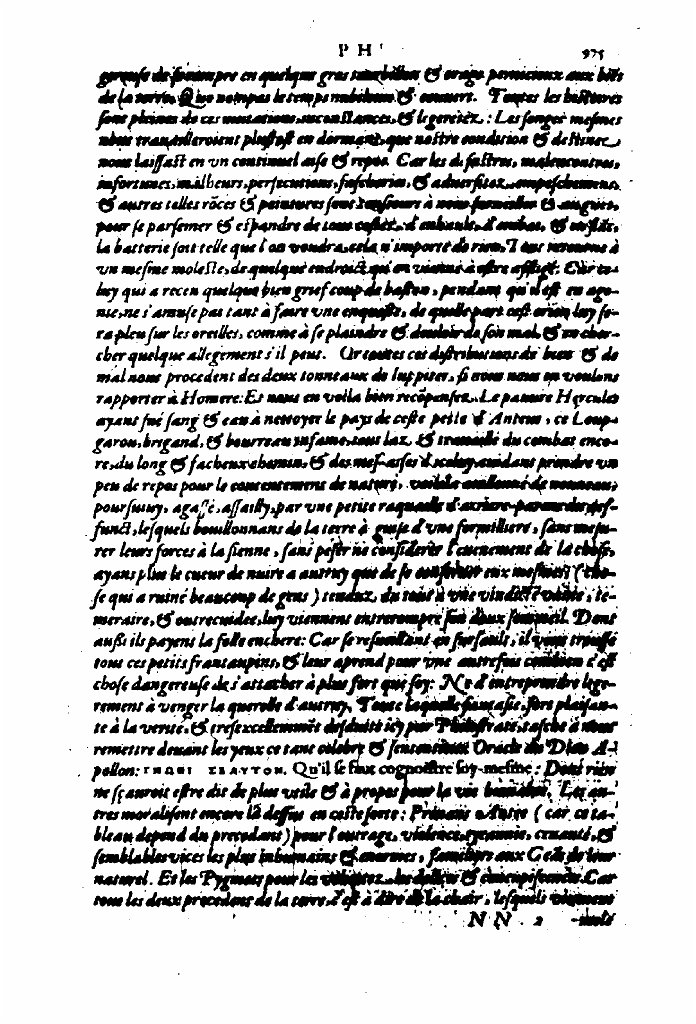 PH 975
de la terre. Que non pas le temps nubileux & couuert. Toutes les histoires
sont pleines de ces mutations, inconstances, & legeretez: Les songes mesmes
nous trauailleroient plustost en dormant, que nostre condition & destinee,
nous laissast en vn continuel aise & repos. Car les desastres, malencontres,
infortunes, malheurs, persecutions, fascheries, & aduersitez, empeschemens,
& autres telles rõces & pointures sont tousiours à nous
pour se parsemer & espandre de tous costez, d'enhault, d'embas,
la batterie soit telle que l'on voudra, cela n'importe de rien, Tout reuenans à
vn mesme moleste, de quelque endroict qui en vienne à estre affligé. Car ce-
luy qui a receu quelque bien grief coup de baston, pendant qu'il est en ago-
nie, ne s'amuse pas tant à faire vne enqueste, de quelle part cest orion luy se-
ra pleu sur les oreilles, comme à se plaindre & douloir de son mal, & en cher-
cher quelque allegement s'il peut. Or toutes ces distributions de bien & de
mal nous procedent des deux tonneaux de Iuppiter, si nous nous en voulons
rapporter à Homere: Et nous en voila bien recõpensez. Le pauure Hercules
ayant sué sang & eau à nettoyer le pays de ceste peste d'Anteus, ce Loup-
garou, brigand, & bourreau infame, tout laz, & trauaillé du combat enco-
re, du long & facheux chemin, & des mes-aises d'iceluy, cuidant prendre vn
peu de repos pour le contentement de nature, voi-le-la
poursuiuy, agassé, assailly, par vne petite raquaille d'arriere-parens du def-
funct, lesquels bouillonnans de la terre à guise d'vne formilliere, sans mesu-
rer leurs forces à la sienne, sans peser ne considerer l'euenement de la chose,
ayans plus le cueur de nuire a autruy que de se conseruer eux mesmes; (cho-
se qui a ruiné beaucoup de gens) tenduz, du tout à vne vindicte vaine, te-
meraire, & outrecuidee, luy viennent entrerompre son doux sommeil. Dont
aussi ils payent la folle enchere: Car se resueillant en sursault, il vous trousse
tous ces petits frantaupins, & leur aprend pour vne autresfois combien c'est
chose dangereuse de s'attacher à plus fort que soy: Ne d'entreprendre lege-
rement à venger la querelle d'autruy. Toute laquelle fantasie, fort plaisan-
te à la verité, & tresexcellemmẽt desduite icy par Philostrate, tasche à nous
remettre deuant les yeux ce tant celebre & sententieux Oracle du Dieu A-
pollon: ΓΝΩΘΙ ΣΕΑΥΤΟΝ, Qu'il se faut cognoistre soy-mesme: Dont rien
ne sçauroit estre dit de plus vtile & à propos pour la vie humaine. Les au-
tres moralisent encore là dessus en ceste sorte: Prenans Antee (car ce ta-
bleau depend du precedant) pour l'outrage, violence, tyrannie, cruauté, &
semblables vices les plus inhumains & enormes, familiers aux Geãs de leur
naturel. Et les Pygmees pour les voluptez, les delices & concupiscences. Car
tous les deux procedent de la terre, c'est à dire de la chair, lesquels viennent
NN 2